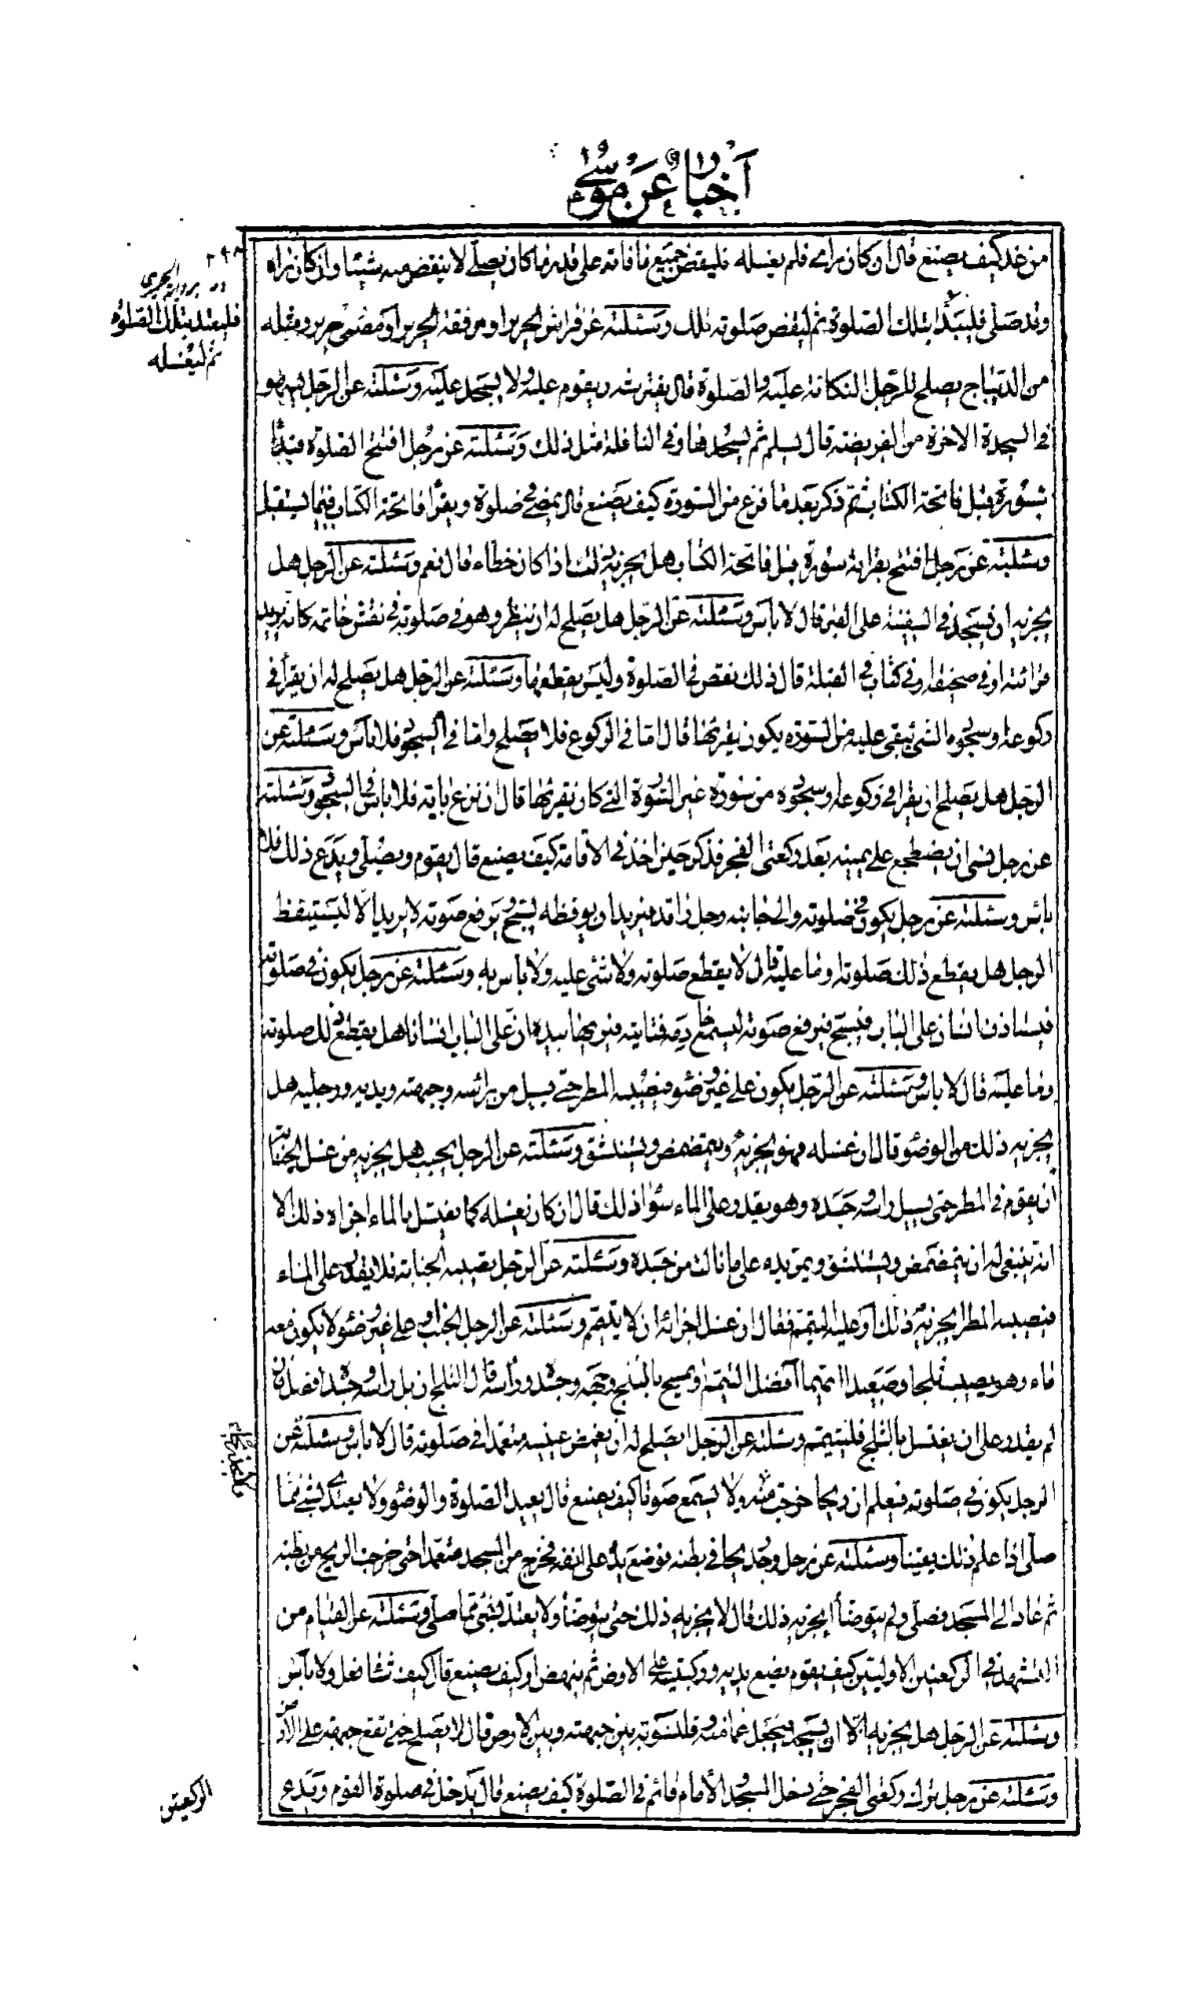 أخبار عن موسى
من غد كيف يصنع قال ان كان رآه فلم يغسله فليقض جميع ما فاته على قدر ما كان يصلّي لا ينقص منه شيئا وان كان رآه
وقد صلى فليبتدأ بتلك الصلوة ثم ليقض صلوته تلك وسئلته عن فراش الحرير او مرفقة الحرير او مصلى حرير ومثله
من الديباج يصلح للرجل التكائة عليه والصلوة قال يفترشه ويقوم عليه ولا يسجد عليه وسئلته عن الرجل يسهو
في السجدة الاخرة من الفريضة قال يسلم ثم يسجدها وفي النافلة مثل ذلك وسئلته عن رجل افتتح الصلوة فبدأ
بسورة قبل فاتحة الكتاب ثم ذكر بعد ما فرغ من السورة كيف يصنع قال يمضي في صلوة ويقرأ فاتحة الكتاب فيما يستقبل
وسئلته عن رجل افتتح بقرائة سورة قبل فاتحة الكتاب هل يجزيه ذلك اذا كان خطاء قال نعم وسئلته عن الرجل هل
يجزيه ان يسجد في السفينة على القير قال لا باس وسئلته عن الرجل هل يصلح له ان ينظر وهو في صلوته في نقش خاتمه كانه يريد
قرائته او في صحيفة او في كتاب في القبلة قال ذلك نقص في الصلوة وليس يقطعها وسئلته عن الرجل هل يصلح له ان يقرأ في
ركوعه او سجوده الشئ يبقى عليه من السورة يكون يقرئها قال اما في الركوع فلا يصلح واما في السجود فلا باس وسئلته عن
الرجل هل يصلح ان يقرا في ركوعه او سجوده من سورة غير السورة التي كان يقرئها قال ان نزع بآية فلا باس في السجود وسئلته
عن رجل نسي ان يضطجع على يمينه بعد ركعتي الفجر فذكر حين اخذ في الاقامة كيف يصنع قال يقوم ويصلي ويدع ذلك فلا
باس وسئلته عن رجل يكون في صلوته والى جانبه رجل راقد فيريد ان يوقظه يسبح ويرفع صوته لا يريد الا ليستيقظ
الرجل هل يقطع ذلك صلوته او ما عليه قال لا يقطع صلوته ولا شئ عليه ولا باس به وسئلته عن رجل يكون في صلوته
فيستاذن انسان على الباب فيسبح فيرفع صوته ليسمع خادمه فتاتيه فيريها بيده ان على الباب انسانا هل يقطع ذلك صلوته
وما عليه قال لا باس وسئلته عن الرجل يكون على غير وضوء فيصيبه المطر حتى يسيل من رأسه وجبهته ويديه ورجليه هل
يجزيه ذلك من الوضوء قال ان غسله فهو يجزيه ويتمضمض ويستنشق وسئلته عن الرجل يجنب هل يجزيه من غسل الجنابة
ان يقوم في المطر حتى يسيل راسه وجسده وهو يقدر على الماء سوا ذلك قال ان كان يغسله كما يغتسل بالماء اجزاه ذلك الا
انه ينبغي له ان يتمضمض ويستنشق ويمر يده على ما نالت من جسده وسئلته عن الرجل يصيبه الجنابة فلا يقدر على الماء
فيصيبه المطر ايجزيه ذلك او عليه التيمم فقال ان غسل اجزائه ان لا يتيمم وسئلته عن الرجل الجنب او على غير وضوء لا يكون معه
ماء وهو يصيب ثلجا وصعيدا ايهما افضل التيمم او يمسح بالثلج وجهه وجسده ورأسه قال الثلج ان بل رأسه وجسده افضل فان
لم يقدر على ان يغتسل بالثلج فليتيمم وسئلته عن الرجل ايصلح له ان يغمض عينيه متعمدا في صلوته قال لا باس وسئلته عن
الرجل يكون في صلوته فيعلم ان ريحا خرجت منه ولا يسمع صوتا كيف يصنع قال يعيد الصلوة والوضوء ولا يعتد بشئ مما
صلى اذا علم ذلك يقينا وسئلته عن رجل وجد ريحا في بطنه فوضع يده على انفه فخرج من المسجد متعمدا حتى خرجت الريح من بطنه
ثم عاد الى المسجد فصلى ولم يتوضأ ايجزيه ذلك قال لا يجزيه ذلك حتى يتوضأ ولا يعتد بشئ مما صلى وسئلته عن القيام من
التشهد في الركعتين الاوليتين كيف يقوم يضع يديه وركبتيه على الارض ثم ينهض او كيف يصنع قال كيف شاء فعل ولا باس
وسئلته عن الرجل هل يجزيه ان يسجد فيجعل عمامته وقلنسوته بين جبهته وبين الارض قال لا يصلح حتى تقع جبهته على الارض
وسئلته عن رجل ترك ركعتي الفجر حتى دخل المسجد والامام قائم في الصلوة كيف يصنع قال يدخل في صلوة القوم ويدع
فليعتد بتلك الصلوة
ثم ليغسله
الركعتين